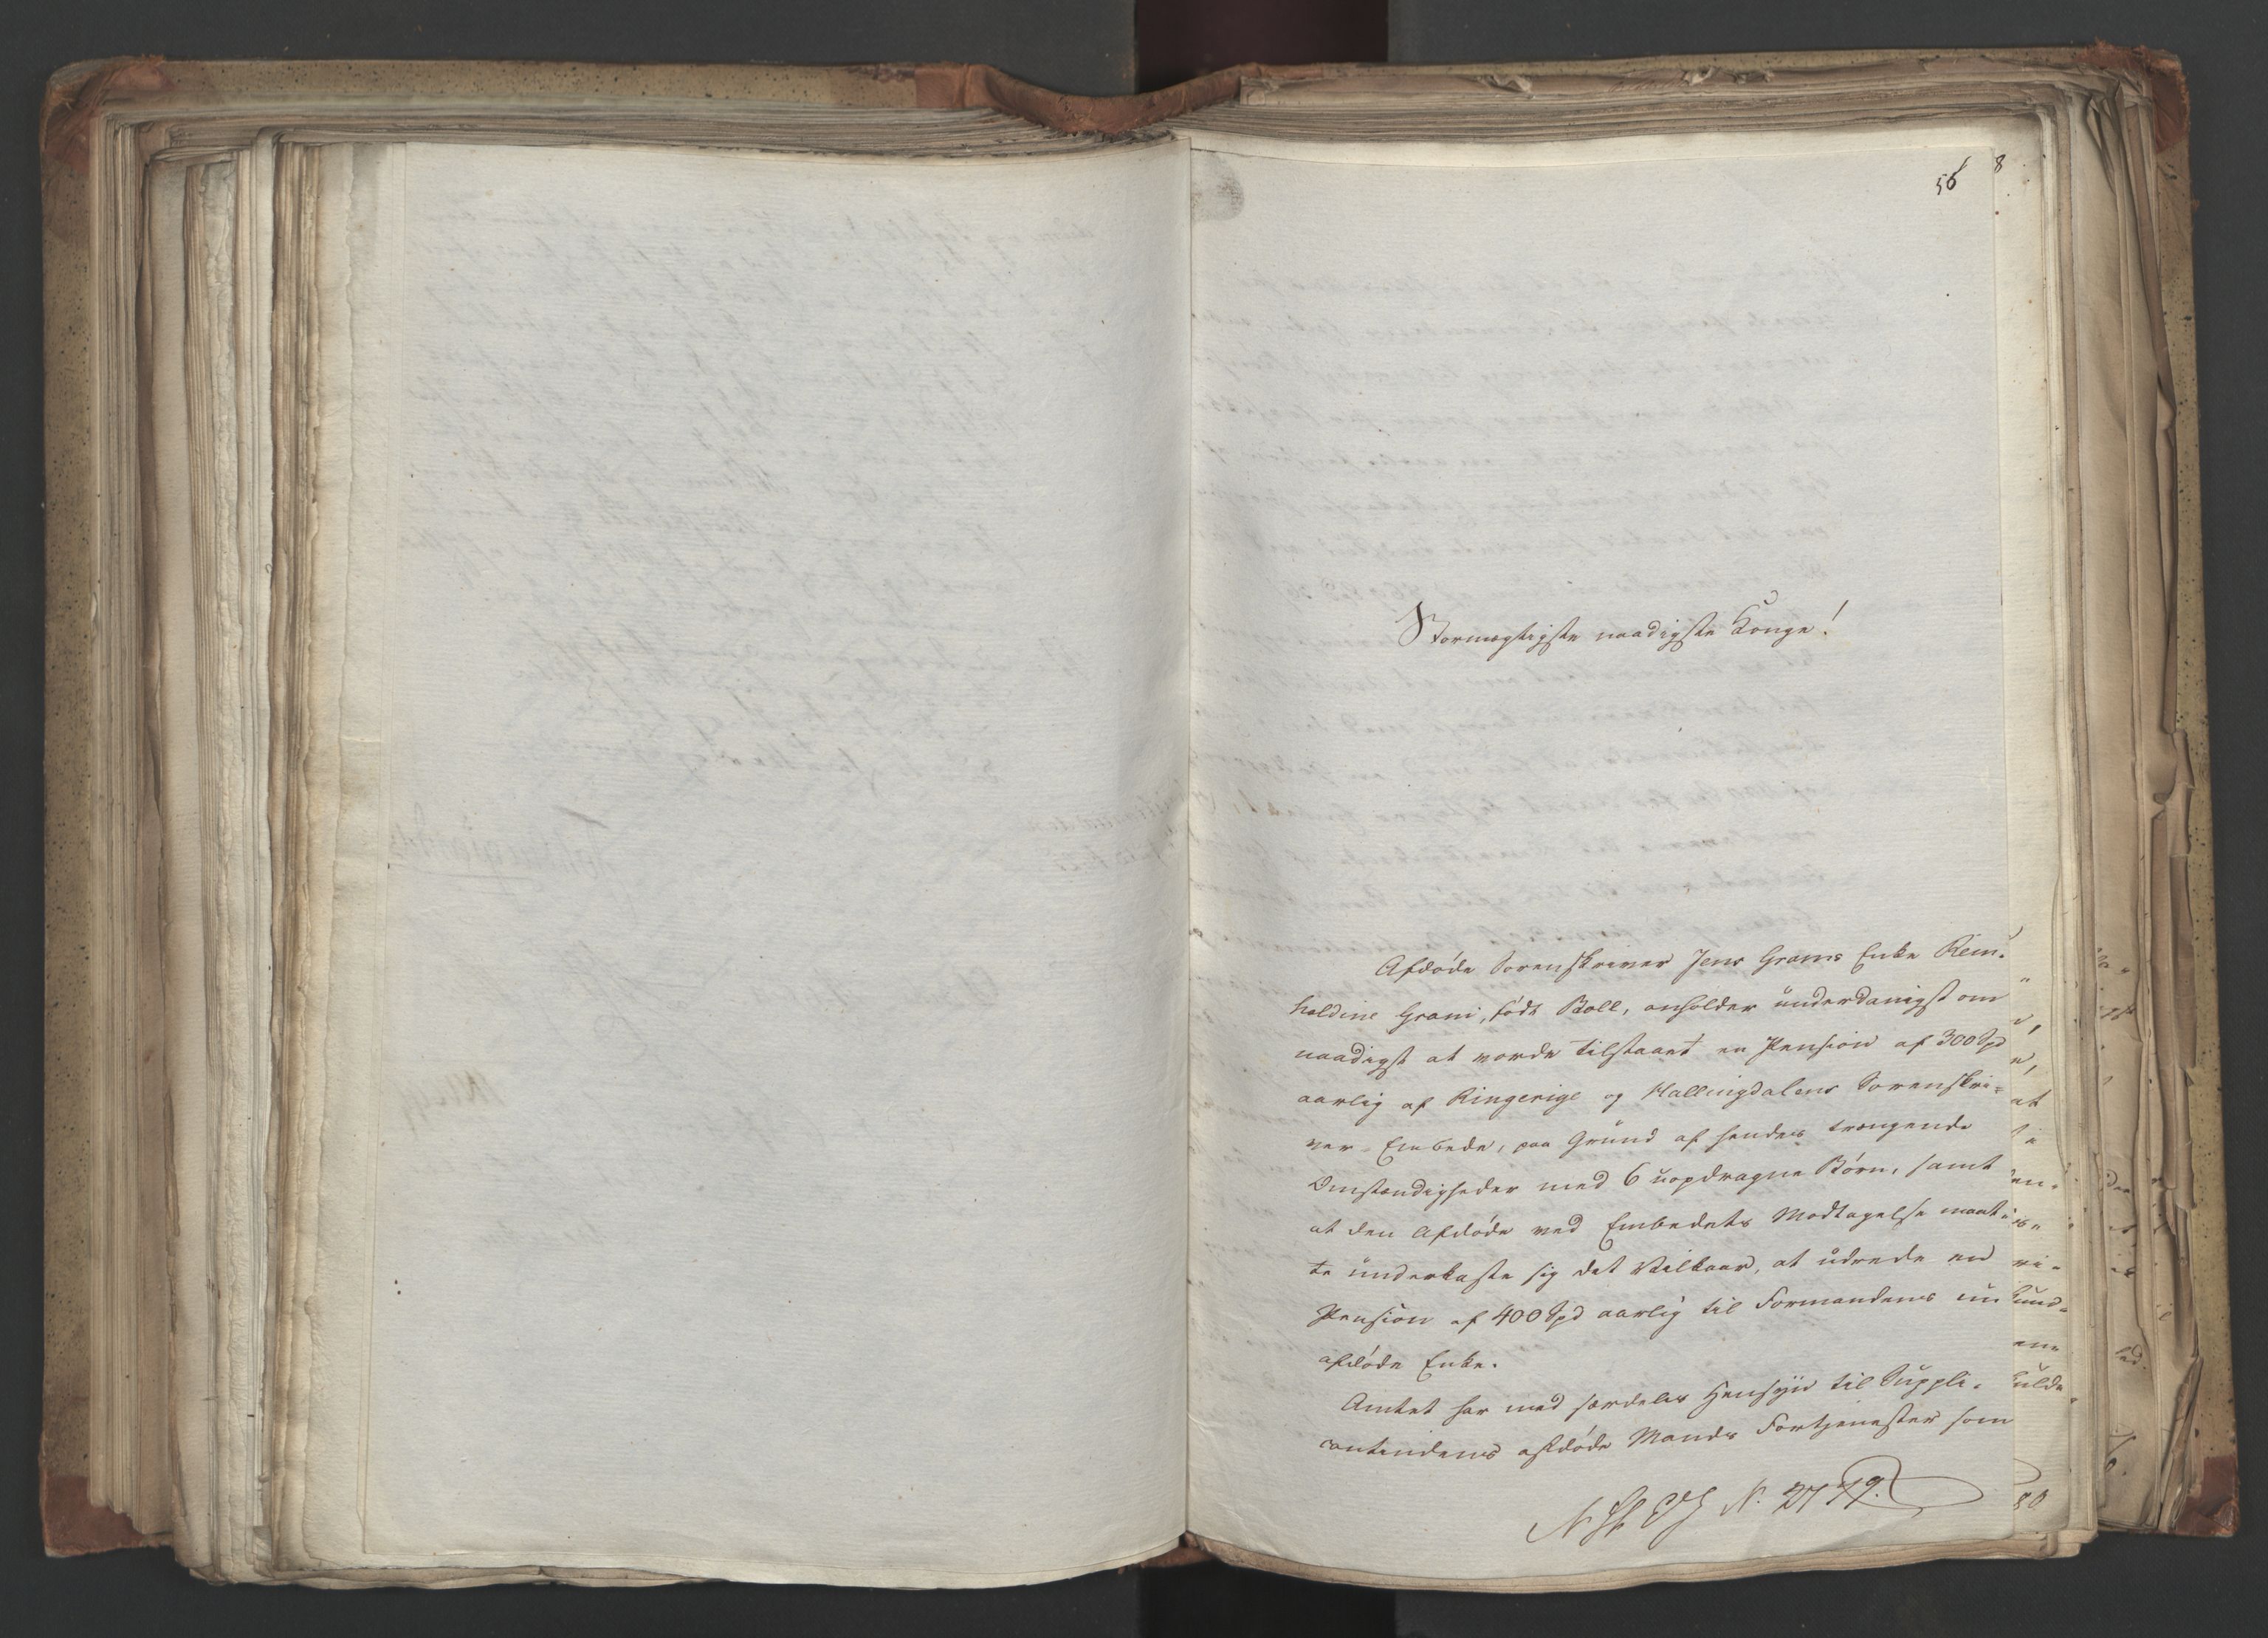 56
8
Stormægtigste naadigste Konge!
Afdøde Sorenskriver Jens Grams Enke Rein-
holdine Gram, født Boll, anholder underdanigst om
naadigst at vorde tilstaaet en Pension af 300 Spd
aarlig af Ringerige og Hallingdalens Sorenskri=
ver Embede, paa Grund af hendes trængende
Omstændigheder med 6 uopdragne Børn, samt
at den Afdøde ved Embedets Modtagelse maat-
te underkaste sig det Vilkaar, at udrede en
Pension af 400 Spd aarlig til Formandens nu
afdøde Enke.
Amtet har med særdeles Hensyn til Suppli-
cantindens afdøde Mands Fortjenester som